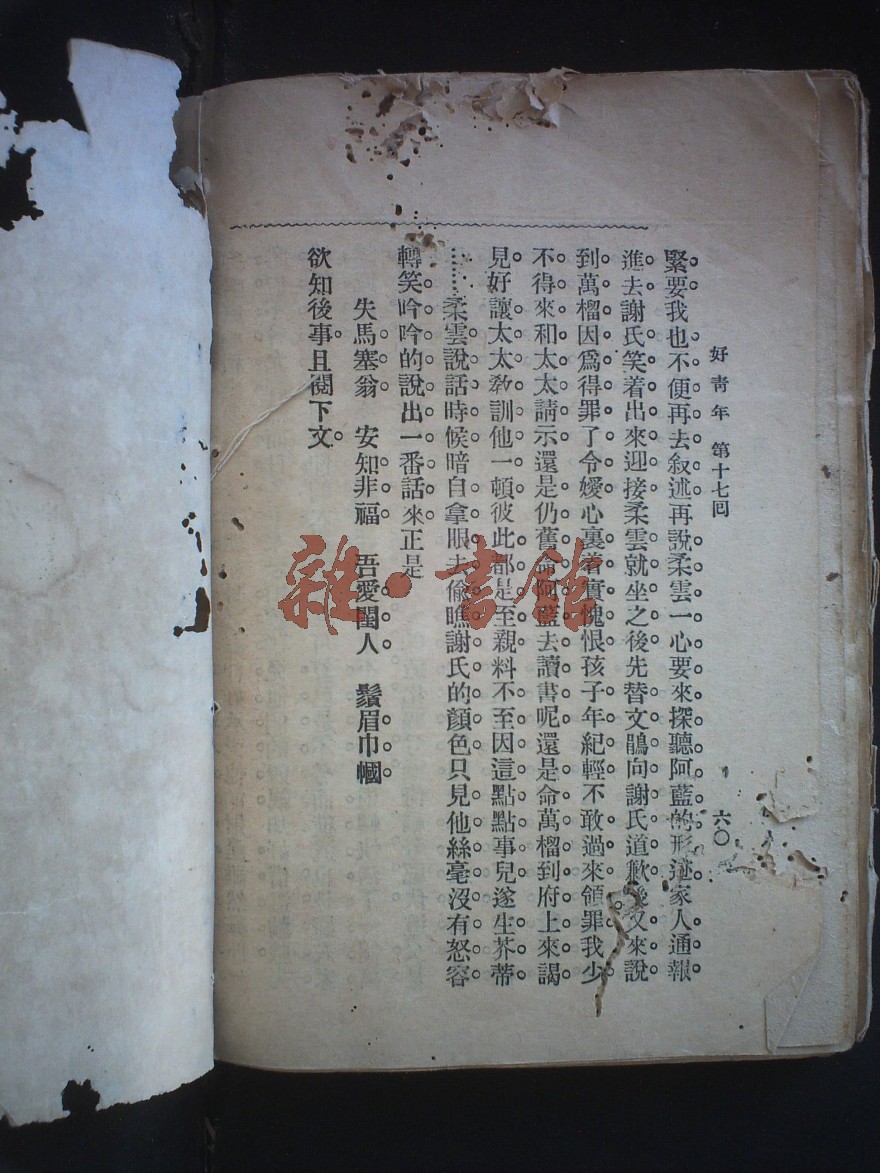 好青年 第十七回 六〇
緊要我也不便再去叙述再說柔雲一心要來探聽阿藍的形迹家人通報
進去謝氏笑着出來迎接柔雲就坐之後先替文鵑向謝氏道歉又來說
到萬榴因爲得罪了令嬡心裏着實愧恨孩子年紀輕不敢過來領罪我少
不得來和太太請示還是仍舊命阿藍去讀書呢還是命萬榴到府上來謁
見好讓太太敎訓他一頓彼此都是至親料不至因這點點事兒遂生芥蒂
……柔雲說話時候暗自拿眼去偸瞧謝氏的顏色只見他絲毫沒有怒容
轉笑吟吟的說出一番話來正是
失馬塞翁 安知非福 吾愛閨人 鬚眉巾幗
欲知後事且閱下文
雜·書館